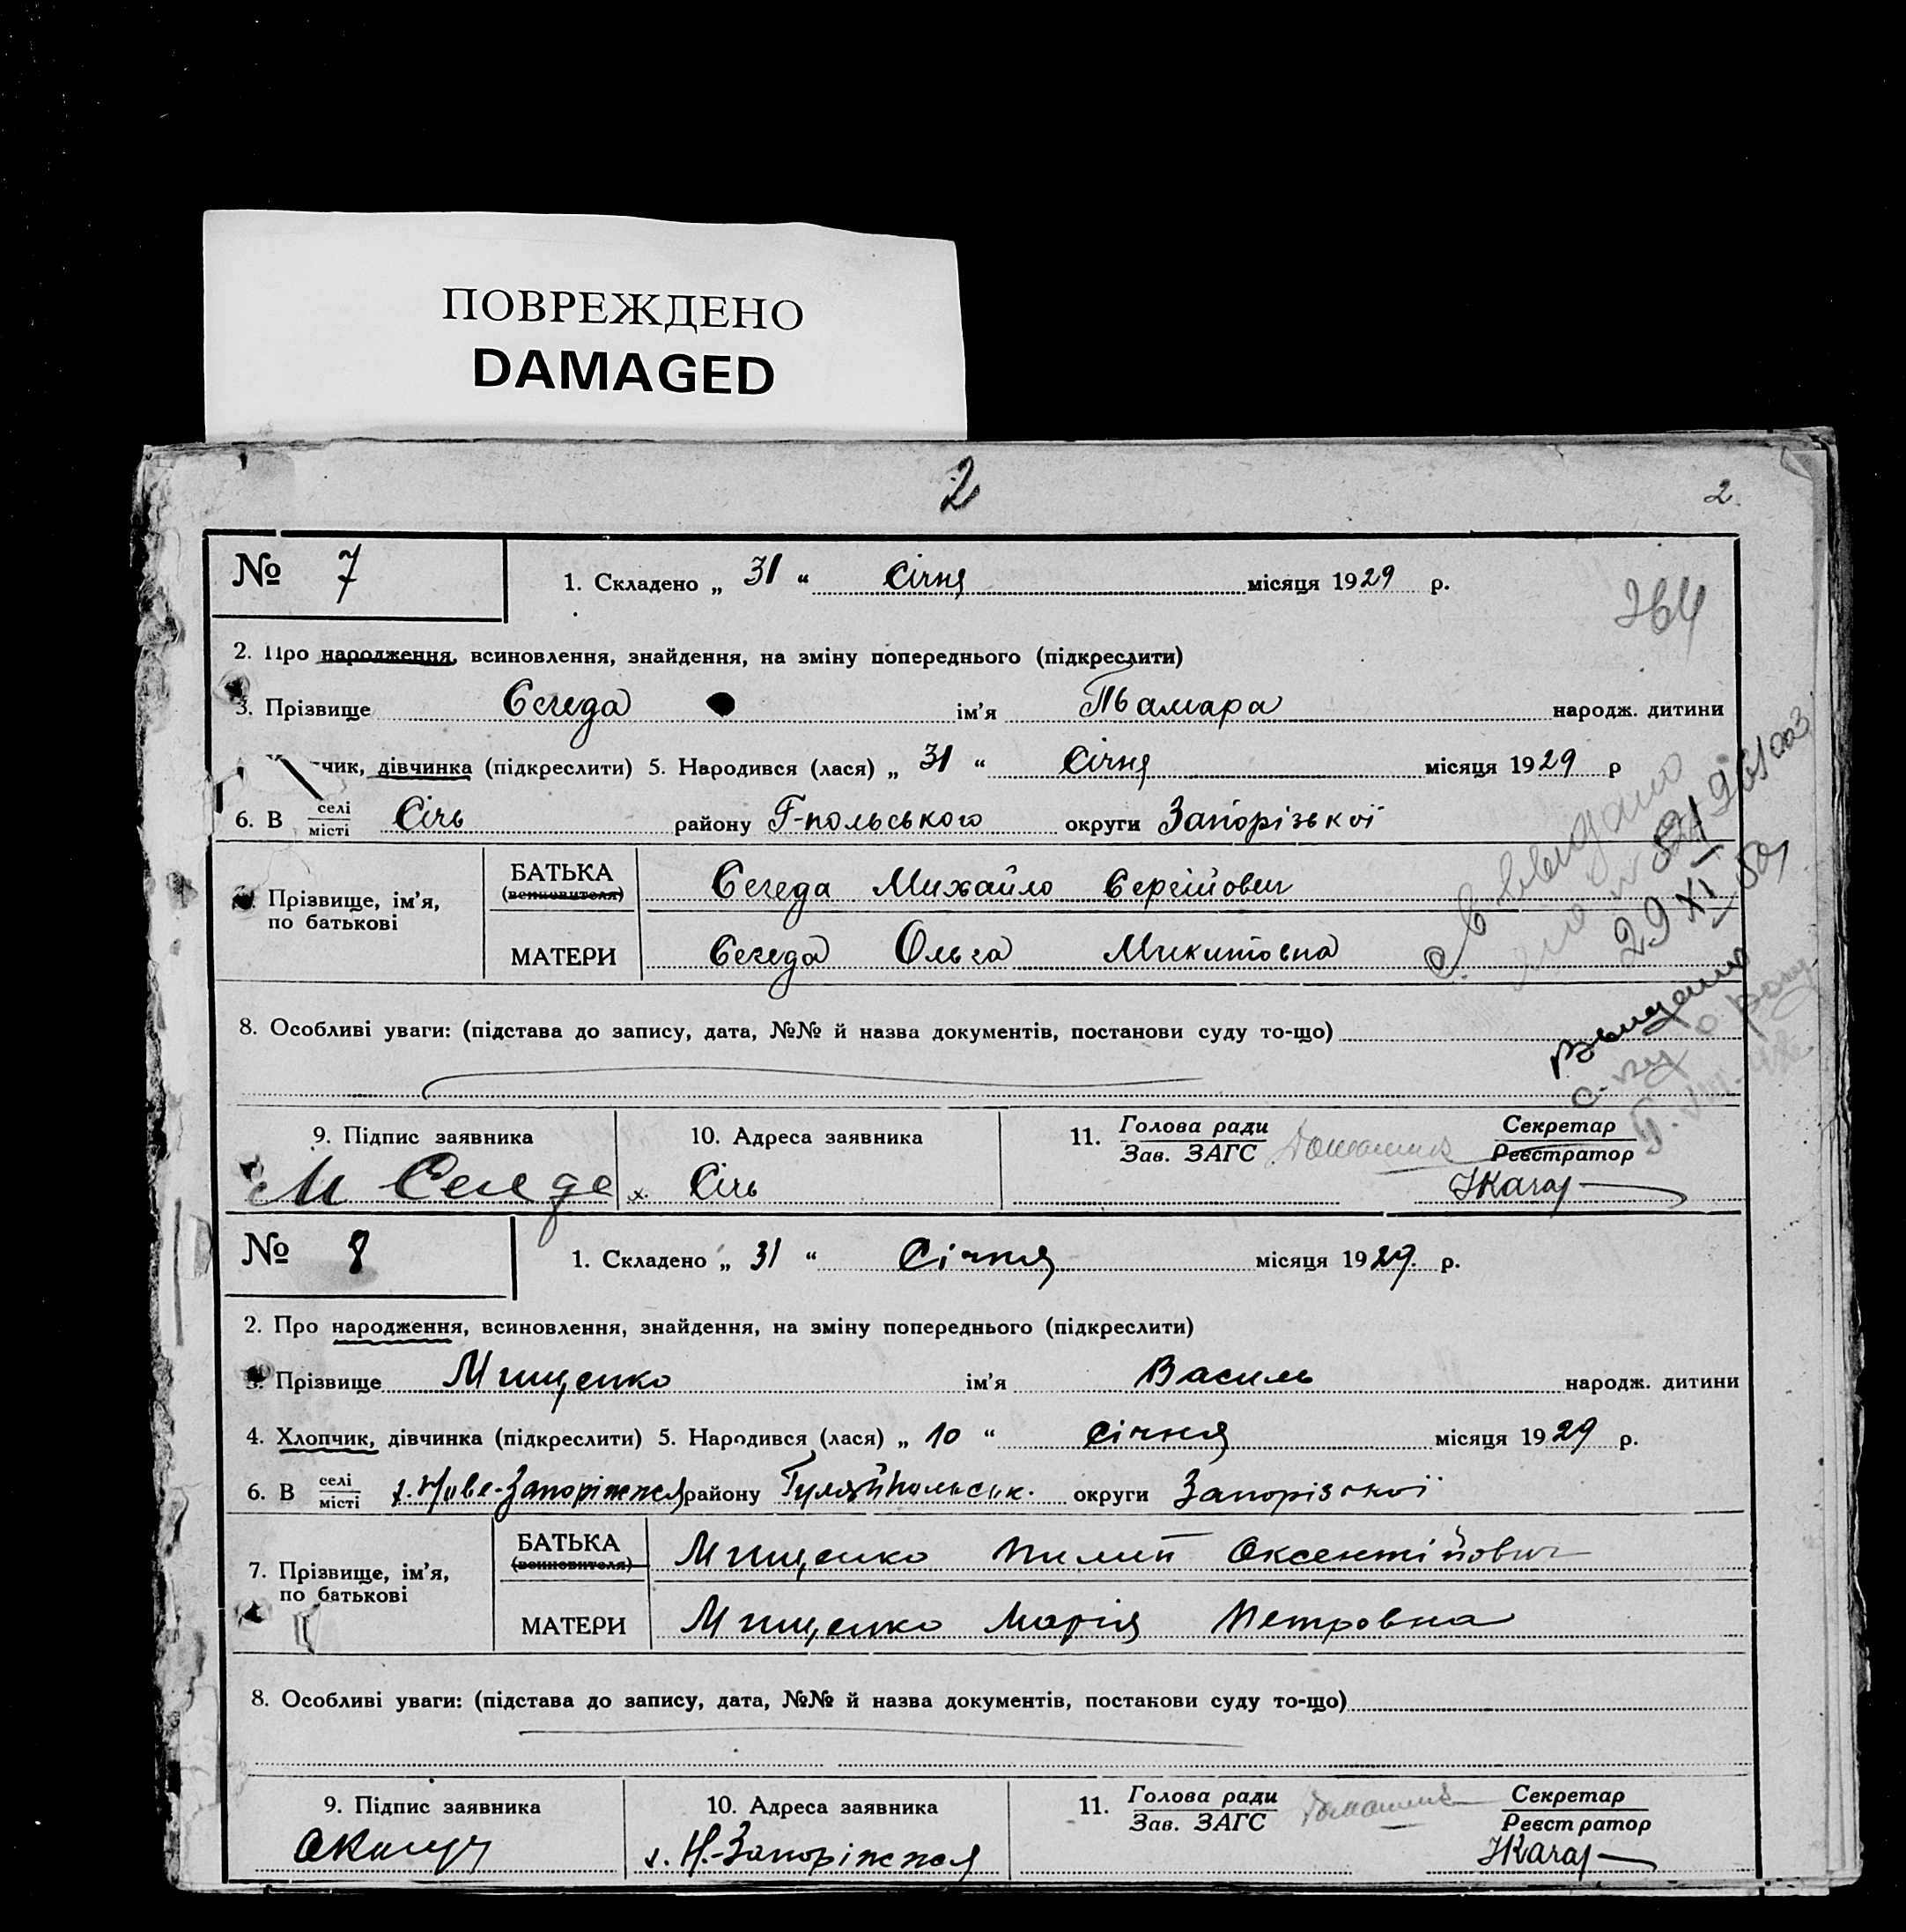 ПОВРЕЖДЕНО
DAMAGED
2
2
№ 7
1. Складено „ 31 “ Січня місяця 1929 р.
764
2. Про народження, всиновлення, знайдення, на зміну попереднього (підкреслити)
3. Прізвище Сегеда ім'я Тамара народж. дитини
чик, дівчинка (підкреслити) 5. Народився (лася) „ 31 “ Січня місяця 1929 р
6. В селі місті Січь району Г-польського округи Запорізької
Прізвище, ім'я, по батькові
БАТЬКА (всиновителя) Сегеда Михайло Сергійович
МАТЕРИ Сегеда Ольга Микитовна
29 XI
8. Особливі уваги: (підстава до запису, дата, №№ й назва документів, постанови суду то-що)
9. Підпис заявника
10. Адреса заявника
11. Голова ради Зав. ЗАГС
Секретар Реєстратор
М Сегеда
Січь
№ 8
1. Складено „ 31 “ Січня місяця 1929. р.
2. Про народження, всиновлення, знайдення, на зміну попереднього (підкреслити)
3. Прізвище Мищенко ім'я Василь народж. дитини
4. Хлопчик, дівчинка (підкреслити) 5. Народився (лася) „ 10 “ січня місяця 1929 р.
6. В селі місті х. Нове-Запоріжжя району Гуляйпольськ. округи Запорізької
7. Прізвище, ім'я, по батькові
БАТЬКА (всиновителя) Мищенко Пилип Оксентійович
МАТЕРИ Мищенко Марія Петровна
8. Особливі уваги: (підстава до запису, дата, №№ й назва документів, постанови суду то-що)
9. Підпис заявника
10. Адреса заявника
11. Голова ради Зав. ЗАГС
Секретар Реєстратор
х. Н.-Запоріжжя